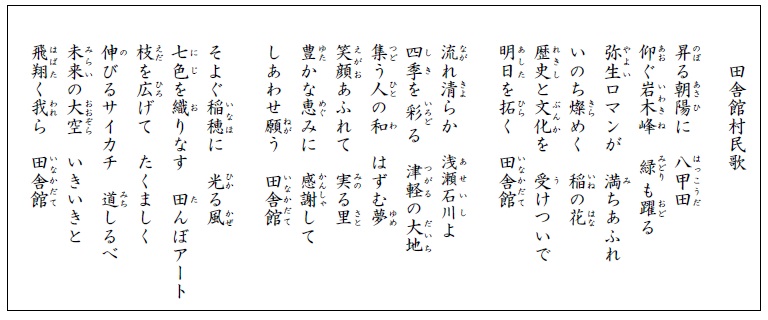 田舎館村民歌
昇る朝陽に 八甲田
仰ぐ岩木峰 緑も躍る
弥生ロマンが 満ちあふれ
いのち燦めく 稲の花
歴史と文化を 受けついで
明日を拓く 田舎館
流れ清らか 浅瀬石川よ
四季を彩る 津軽の大地
集う人の和 はずむ夢
笑顔あふれて 実る里
豊かな恵みに 感謝して
しあわせ願う 田舎館
そよぐ稲穂に 光る風
七色を織りなす 田んぼアート
枝を広げて たくましく
伸びるサイカチ 道しるべ
未来の大空 いきいきと
飛翔く我ら 田舎館